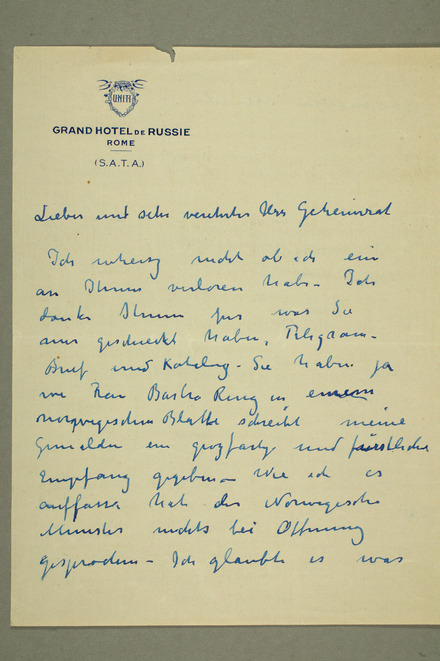 UNITI
GRAND HOTEL DE RUSSIE
ROME
(S.A.T.A.)
Lieber und sehr verehrter Herr Geheimrat
Ich nicht ob ich ein
an Ihnen verloren habe. Ich
danke Ihnen für was Sie
mir geschickt haben, Telegram-
Brief und Katalog. Sie haben ja
wie Frau Barbra Ring in einem
norwegischen Blatte schreibt meine
Gemälden ein grozfartig und fürstliche
Empfang gegeben – Wie ich es
auffasse hat der Norwegische
Minister nichts bei Öffnung
gesprochen – Ich glaubte es was